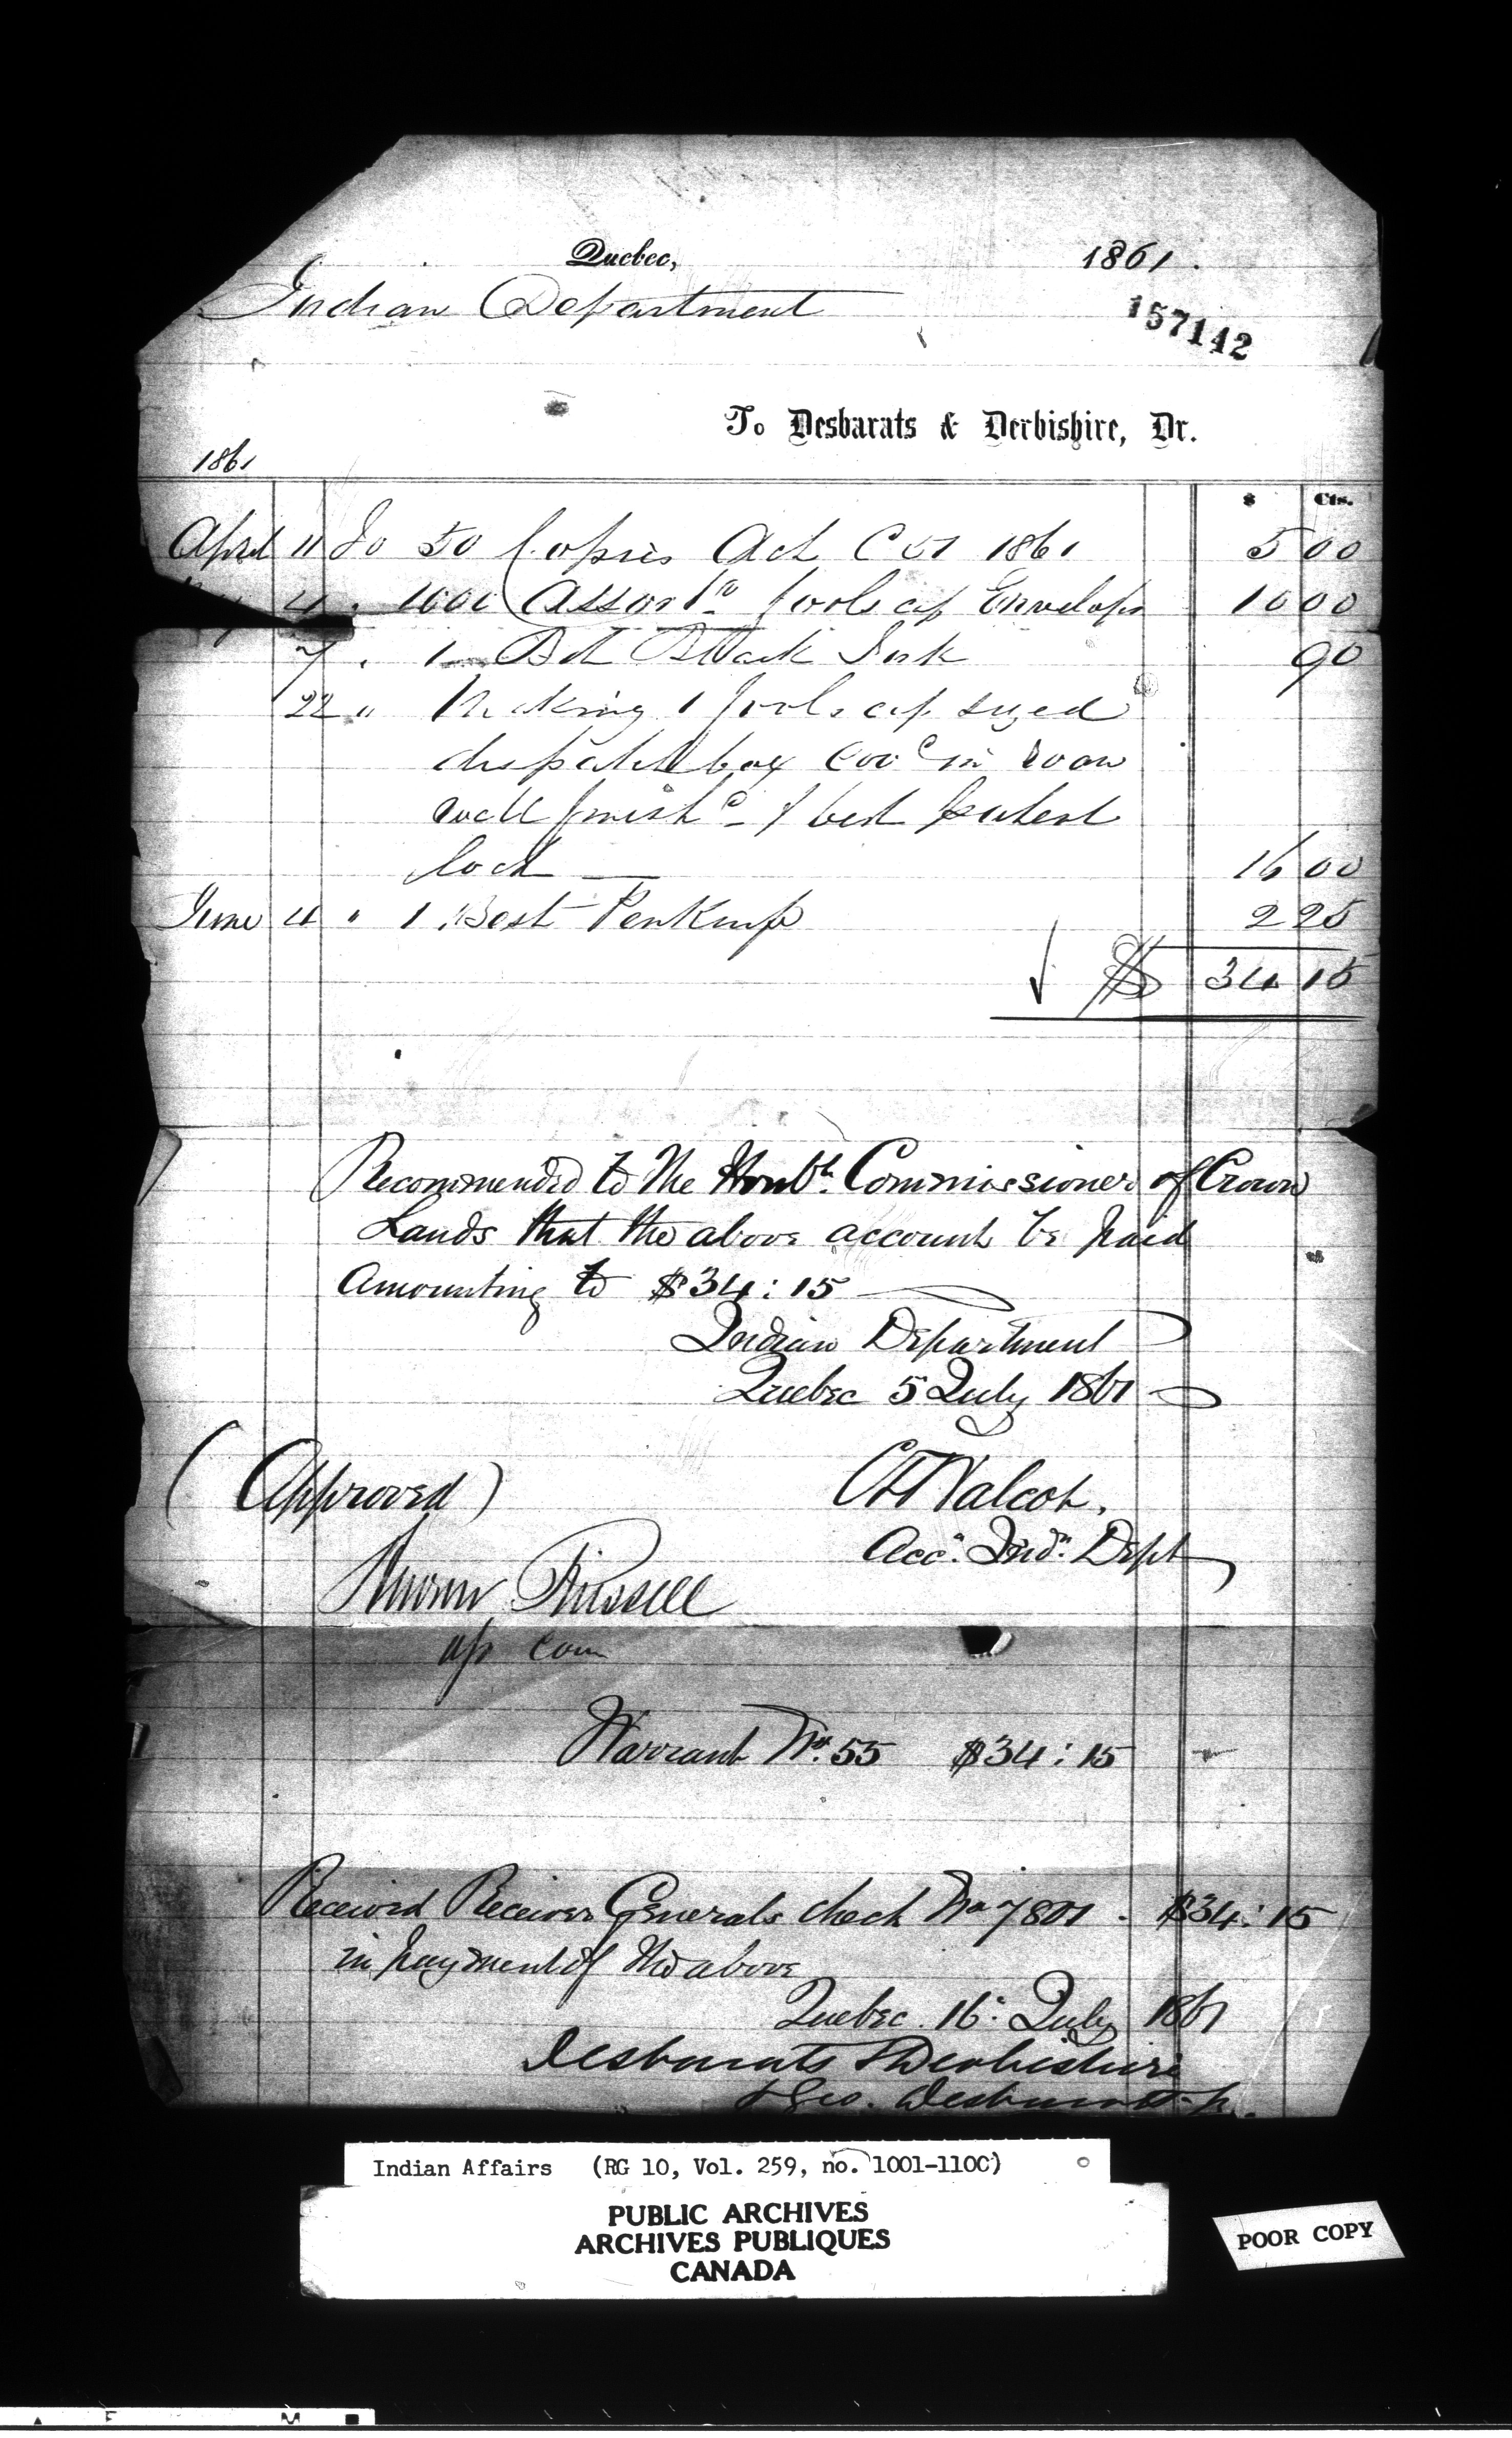 Quebec, 1861.
Indian Department
157142
To Desbarats & Derbishire, Dr.
1861
$ Cts.
April 11 To 50 Copies Act 1861 5 00
4 " 1000 Assortd foolscap Envelops 10 00
7 " 1 Bot Black Ink 90
22 " Making 1 foolscap sized
dispatch box covd in roan
well finishd & best patent
lock — 16 00
June 4 " 1 Best Penknife 2 25
$ 34 15
Recommended to The Honble. Commissioner of Crown
Lands that the above account be paid
amounting to $34:15
Indian Department
Quebec 5 July 1861
(Approved)
C T Walcot.
Acct. Indn. Dept
Andrew Russell
As Com
Warrant No. 55 $34:15
Received Receiver Generals check No 7801 . $34:15
in payment of the above
Quebec 16 July 1861
Desbarats & Derbishire
Geo. Desbarats Jr.
Indian Affairs (RG 10, Vol. 259, no. 1001-1100)
PUBLIC ARCHIVES
ARCHIVES PUBLIQUES
CANADA
POOR COPY